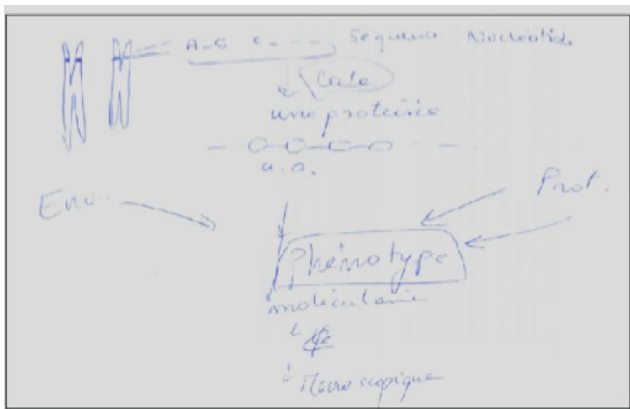 A-C C - - - Séquence Nucléotide
Code
une protéine
a.a.
Env.
Prot.
Phénotype
moléculaire
Macroscopique